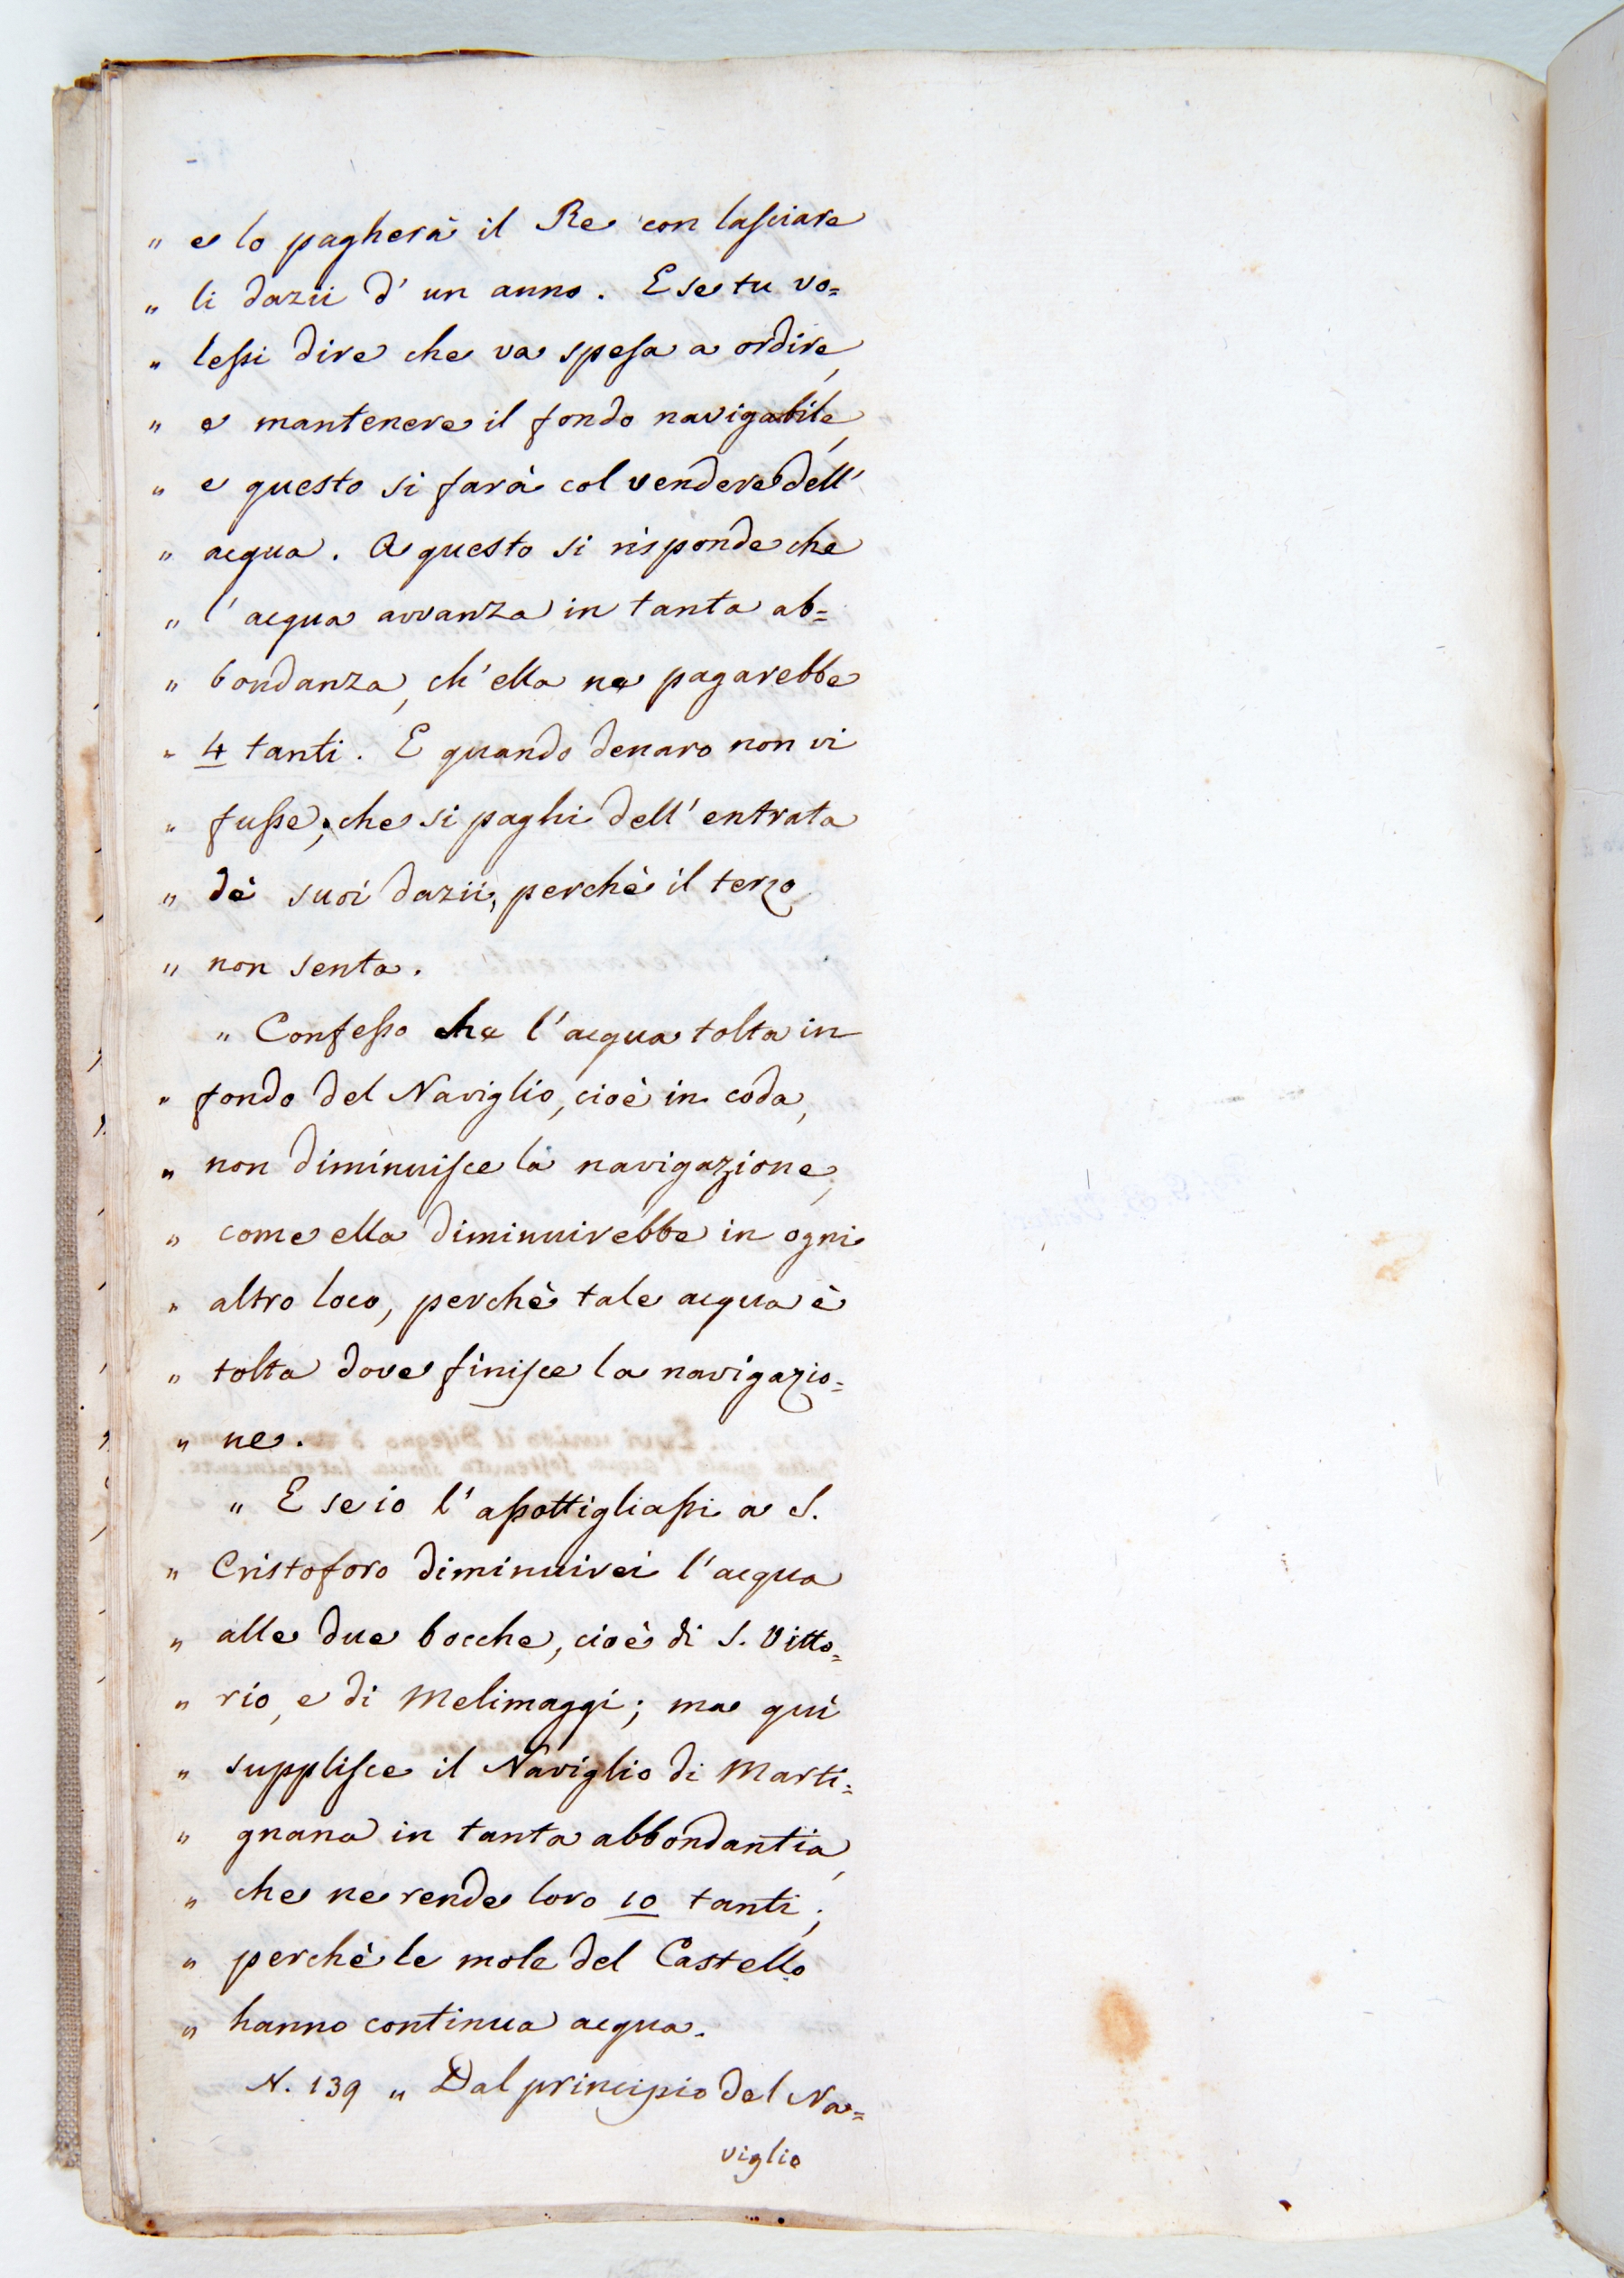 „ e lo pagherà il Re con lasciare
„ li dazii d' un anno. E se tu vo=
„ lessi dire che va spesa a ordire,
„ e mantenere il fondo navigabile,
„ e questo si farà col vendere dell'
„ acqua. A questo si risponde che
„ l' acqua avvanza in tanta ab=
„ bondanza, ch' ella ne pagarebbe
„ 4 tanti. E quando denaro non vi
„ fusse; che si paghi dell' entrata
„ dè suoi dazii, perchè il terzo
„ non senta.
„ Confesso che l' acqua tolta in
„ fondo del Naviglio, cioè in coda,
„ non diminuisce la navigazione,
„ come ella diminuirebbe in ogni
„ altro loco, perchè tale acqua è
„ tolta dove finisce la navigazio=
„ ne.
„ E se io l' assottigliassi a S.
„ Cristoforo diminuirei l' acqua
„ alle due bocche, cioè di S. Vitto=
„ rio, e di Melimaggi; ma quì
„ supplisce il Naviglio di Marti=
„ gnana in tanta abbondantia,
„ che ne rende loro 10 tanti;
„ perchè le mole del Castello
„ hanno continua acqua.
N. 139 „ Dal principio del Na=
viglio